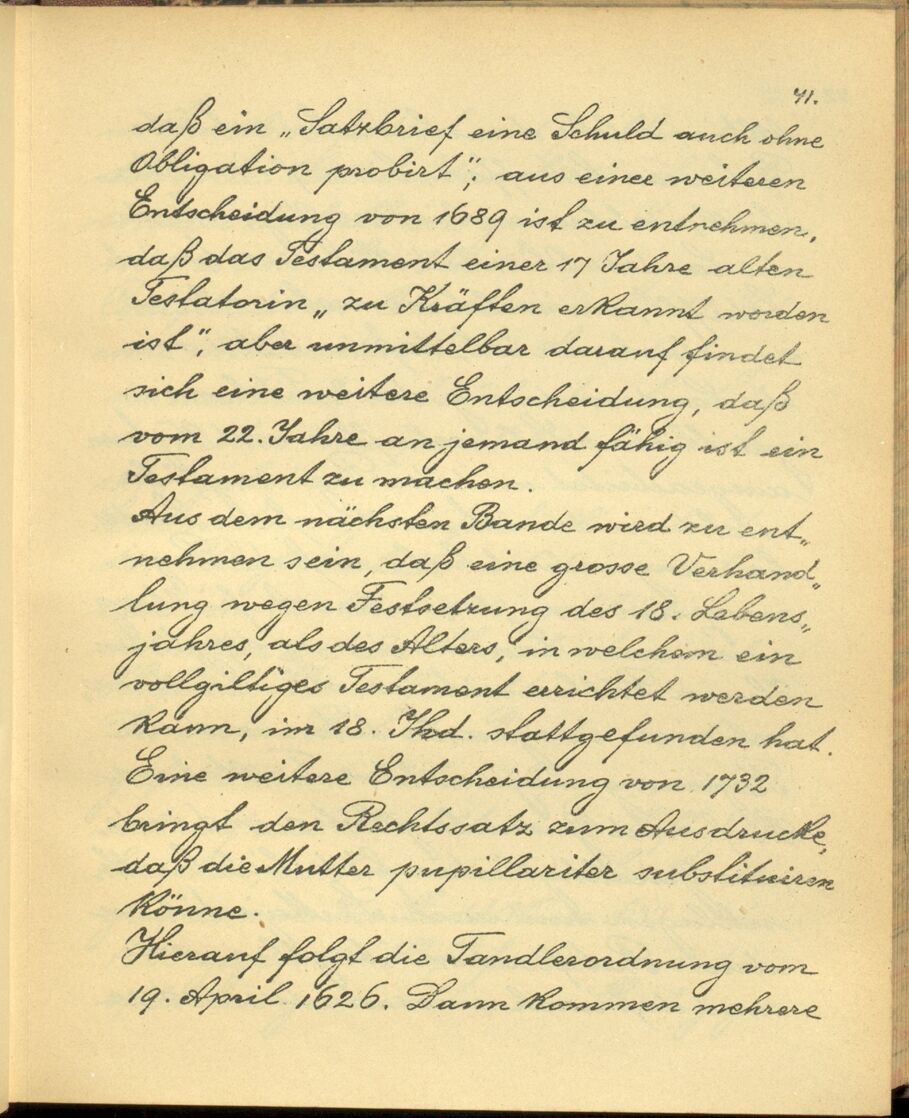 71.
daß ein „Satzbrief eine Schuld auch ohne
Obligation probirt“; aus einer weiteren
Entscheidung von 1689 ist zu entnehmen,
daß das Testament einer 17 Jahre alten
Testatorin „zu Kräften erkannt worden
ist“, aber unmittelbar darauf findet
sich eine weitere Entscheidung, daß
vom 22. Jahre an jemand fähig ist ein
Testament zu machen.
Aus dem nächsten Bande wird zu ent„
nehmen sein, daß eine grosse Verhand„
lung wegen Festsetzung des 18. Lebens„
jahres, als des Alters, in welchem ein
vollgiltiges Testament errichtet werden
kann, im 18. Jhd. stattgefunden hat.
Eine weitere Entscheidung von 1732
bringt den Rechtssatz zum Ausdrucke,
daß die Mutter pupillariter substituiren
könne.
Hierauf folgt die Tandlerordnung vom
19. April 1626. Dann kommen mehrere